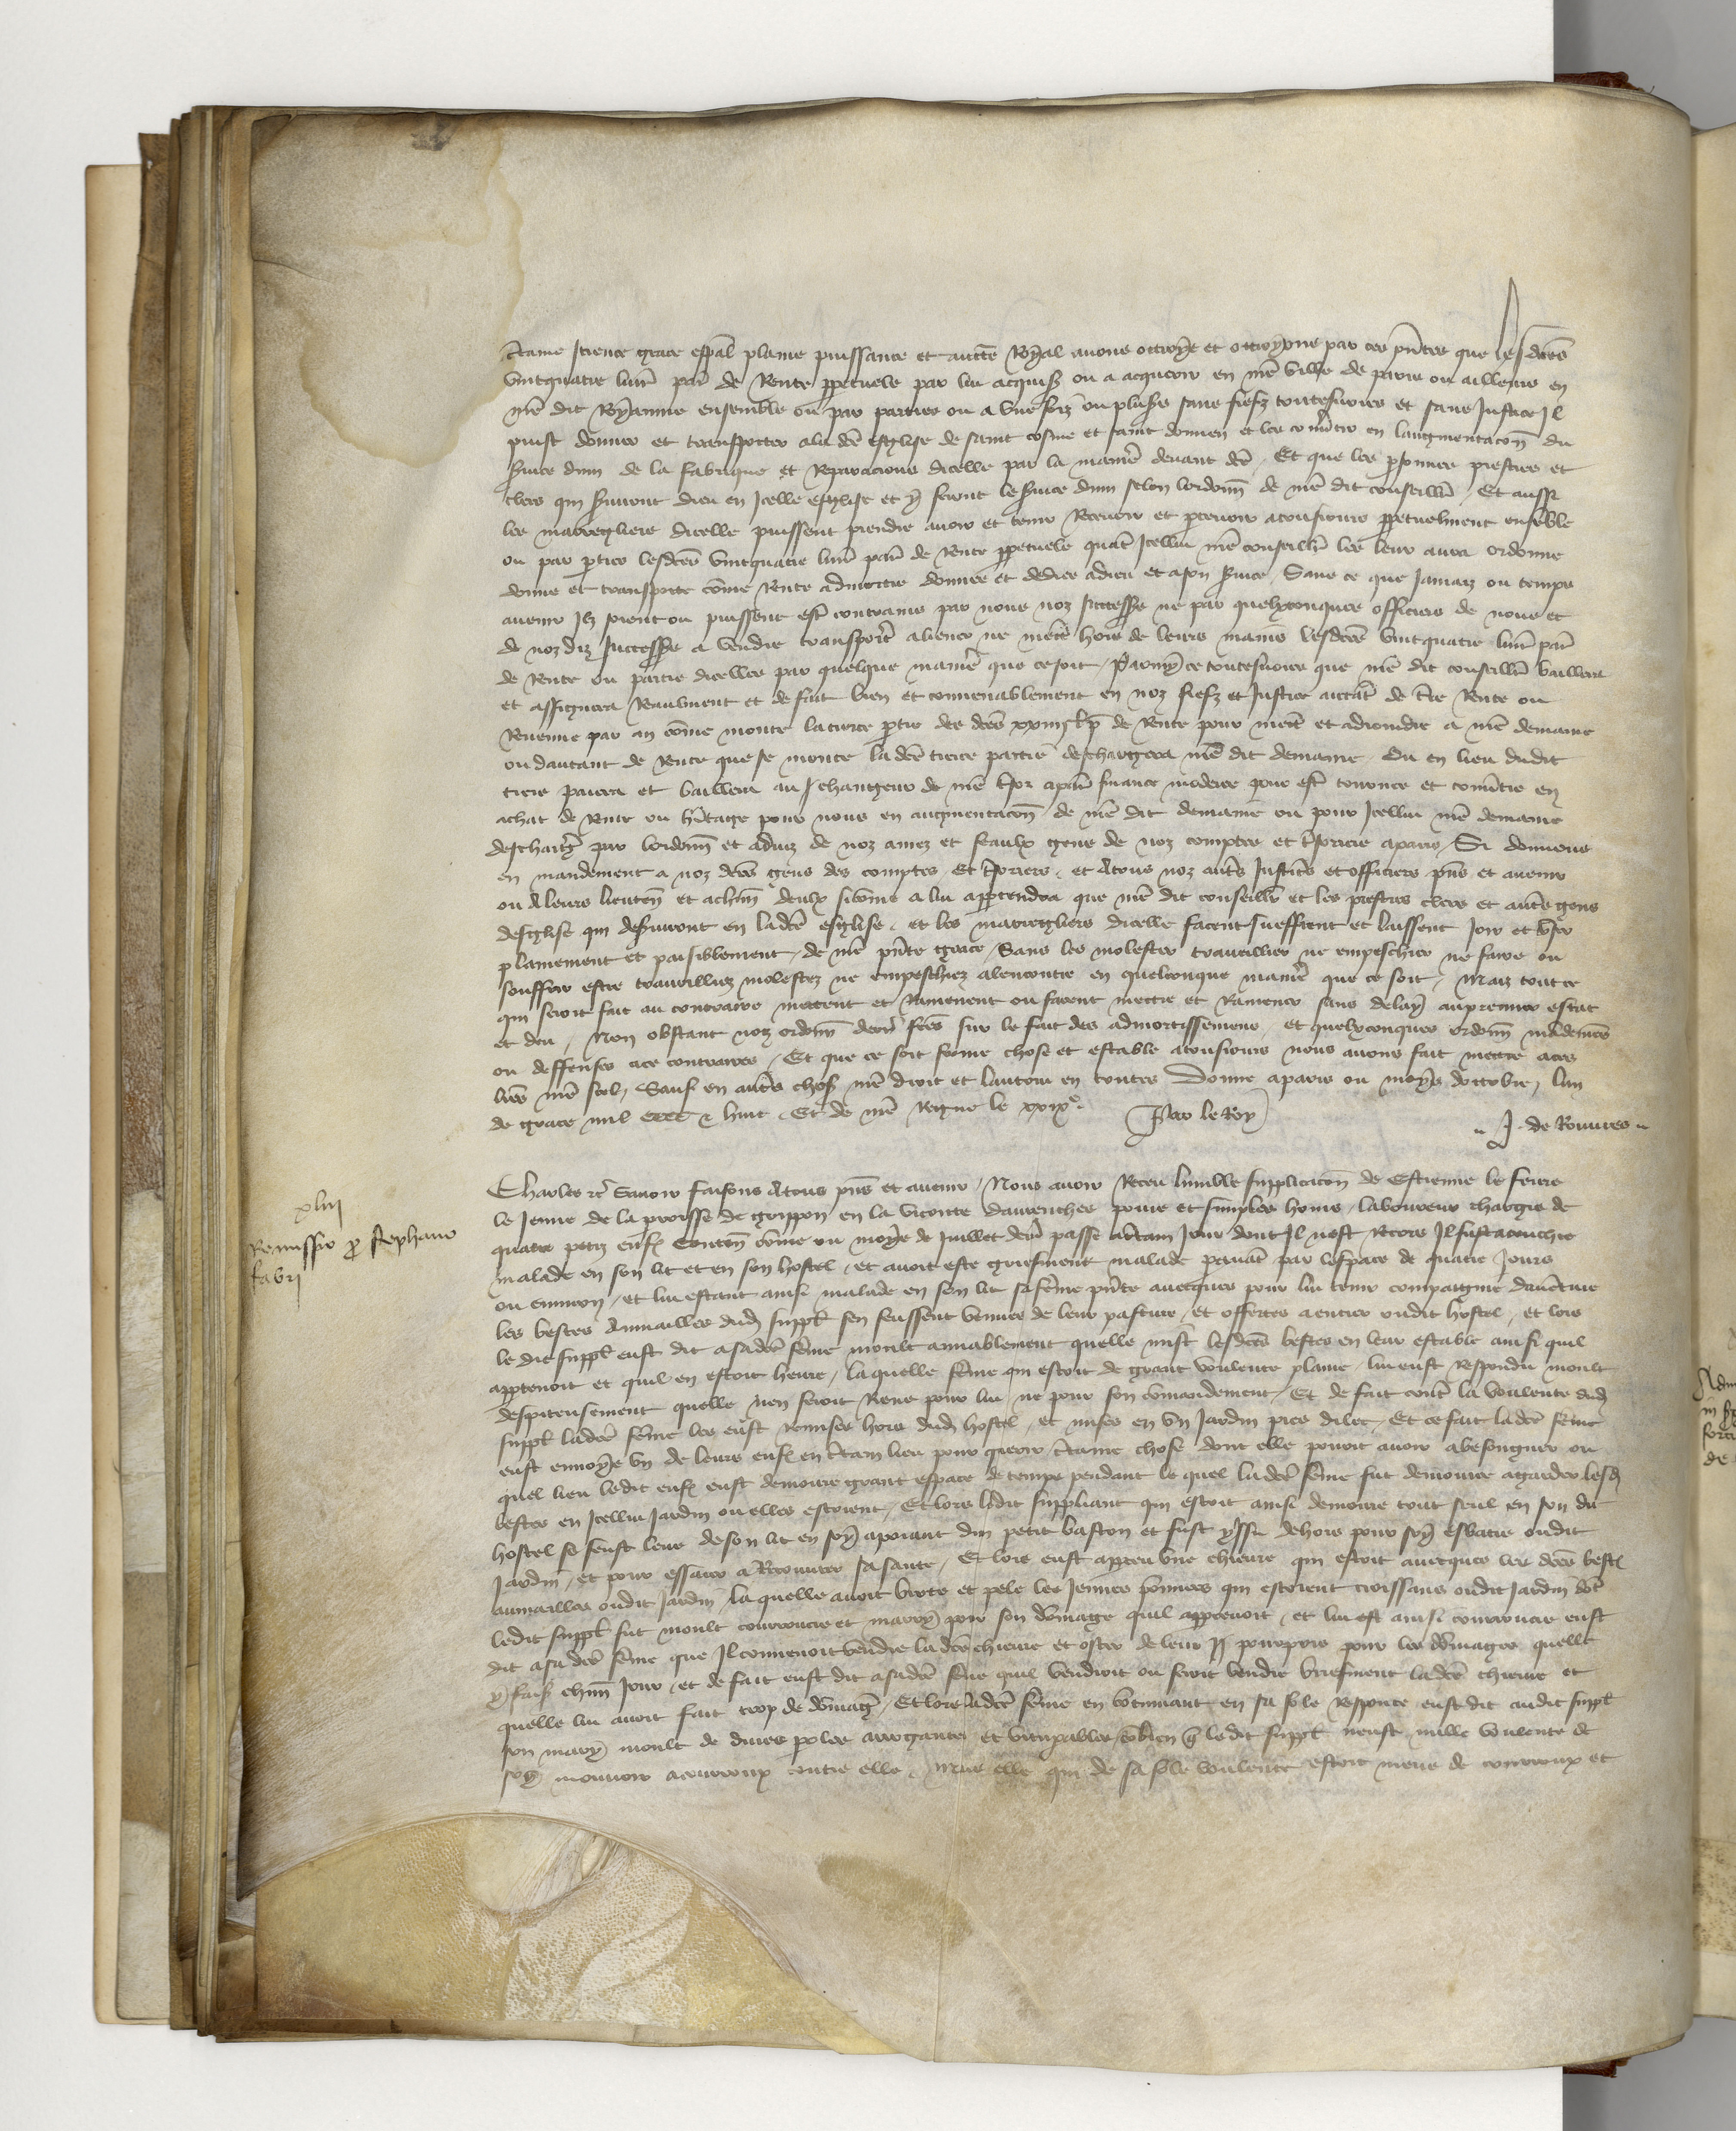 c̃taine science grace esp̃al plaine puissance et auct̃e Roỹal auons ottroỹe et ottroỹons par ces p̃ntes que lesdc̃es
vintquatre liur̃ par̃ de Rente p̱petuele par lui acquis̃ ou a acquerir en nr̃e ville de paris ou ailleurs en
nr̃e dit Roỹaume ensemble ou par parties ou a vne foiz ou plus̃rs sans fiefz toutesuoies et sans Justice Il
puist donner et transporter a la dc̃e esglise de saint cosme et saint domien et les co‾u̔tir en laugmentac̃on du
s̃uice diuin de la fabrique et Reparacions dicelle par la manie̔ deuant dc̃e / Et que les p̱sonnes prestres et
clers qui s̃uiront dieu en Icelle esglise et ỹ feront le s̃uice diuin selon lordonn̄ de nr̃e dit conseill̃r / Et aussi
les marregliers dicelle puissent prendre auoir et tenir Receuoir et p̱ceuoir a tousiours p̱petuelment ensẽble
ou par p̱ties lesdc̃es vintquatre liur̃ par̃ de Rente p̱petuele quãt Icellui nr̃e conseill̃r les leur aura ordonne
donne et transporte cõme Rente admortie donnee et dediee a dieu et a son s̃uice / Sans ce que Jamaiz ou temps
auenir Ilz soient ou puissent est̃ contrains par nous noz successe̔s ne par quelxconques officiers de nous et
de noz diz successe̔s a vendre transport̃ aliener ne mett̃ hors de leurs mains lesdc̃es vintquatre liur̃ par̃
de Rente ou partie dicelles par quelque manie̔ que ce soit / Parmỹ ce toutesuoies que nr̃e dit conseill̃r baillera
et assignera Reaulment et de fait bien et conuenablement en noz fiefz et Justice autãt de t̃re Rente ou
Reuenue par an cõme monte la tierce p̱tie des dc̃es xxiiij l̃ p̃ de Rente pour mett̃ et adioindre a nr̃e demaine
ou dautant de Rente que se monte la dc̃e tierce partie deschargera nr̃e dit demaine Ou en lieu dudit
tiers paiera et baillera au changeur de nr̃e t̃sor a par̃ finance moderee pour est̃ tournee et conu̔tie en
achat de Rente ou h̃itage pour nous en augmentac̃on de nr̃e dit demaine ou pour Icellui nr̃e demaine
descharg̃ par lordonn̄ et aduiz de noz amez et feaulx gens de noz comptes et t̃soriers a paris / Si donnons
en mandement a noz dc̃es gens des comptes Et t̃soriers / et A tous noz aut̃s Justic̃rs et officiers p̃ns et auenir
ou A leurs lieuten̄ et a chũn deulx si cõme a lui app̱tendra que nr̃e dit conseill̃r et les prestres clers et aut̃s gens
desglise qui des̃uiront en ladc̃e esglise / et les marregliers dicelle facent sueffrent et laissent Joir et vs̃er
plainement et paisiblement de nr̃e p̃nte grace / Sans les molester trauaillier ne empeschier ne faire ou
souffrir estre trauailliez molestez ne empeschiez alencontre en quelconque manie̔ que ce soit / Maiz tout ce
qui seroit fait au contraire mettent et Ramenent ou facent mettre et Ramener sans delaỹ au premier estat
et deu / Non obstant noz ordonn̄ derr̃ fc̃es sur le fait des admortissemens et quelxconques ordonn̄ mãdemẽs
ou deffenses a ce contraires / Et que ce soit ferme chose et estable a tousiours nous auons fait mettre a ces
lr̃es nr̃e scel / Sauf en aut̃s choses nr̃e droit et lautrui en toutes Donne a paris ou moỹs doctobre / lan
de grace mil cccc et huit / Et de nr̃e Regne le xxix⁰. Par le Roy
J. de Rouures
xliij
Remissio p̱ Stephano
fabri
Charles etc̃ Sauoir faisons A tous p̃ns et auenir / Nous auoir Receu lumble supplicac̃on de Estienne le feure
le Jeune de la paroisse de grippon en la viconte dauranches poure et simples homs / laboureur chargie de
quatre petiz enfans Conten̄ cõme ou moỹs de Juillet derr̃ passe a c̃tain Jour dont Il nest Recors Il fust acouchie
malade en son lit et en son hostel / et auoit este griefment malade p̱auãt par lespace de quatre Jours
ou enuiron / et lui estant ainsi malade en son lit sa fẽme p̃nte auecques pour lui tenir compaignie dauẽture
les bestes Aumailles dud̃ suppl̃ sen feussent venues de leur pasture / et offertes a entrer oudit hostel / et lors
le dit suppl̃ eust dit a sadc̃e fẽme moult amiablement quelle mist lesdc̃es bestes en leur estable ainsi quil
app̱tenoit et quil en estoit heure / laquelle fẽme qui estoit de grant voulente plaine / lui eust Respondu moult
despiteusement quelle nen feroit Riens pour lui ne pour son cõmandement / Et de fait cont̃ la voulente dud̃
suppl̃ ladc̃e fẽme les eust Remises hors dud̃ hostel / et mises en vn Jardin pres dilec / Et ce fait ladc̃e fẽme
eust enuoỹe vn de leurs enfans en c̃tain lieu pour querir c̃taine chose dont elle pouoit auoir a besongner ou
quel lieu ledit enfant eust demoure grant espace de temps pendant le quel ladc̃e fẽme fut demouree a garder lesd̃
bestes en Icellui Jardin ou elles estoient / Et lors ledit suppliant qui estoit ainsi demoure tout seul en son dit
hostel se feust leue de son lit en soỹ apoiant dun petit baston et fust ỹssu dehors pour soỹ esbatre oudit
Jardin / et pour essaier a Recouurer sa sante / Et lors eust apperceu vne chieure qui estoit auecques les dc̃es bestes
aumailles oudit Jardin / laquelle auoit broste et pele les Jennes põmiers qui estoient croissans oudit Jardin dõt
ledit suppl̃ fut moult courroucie et marrỹ pour son dõmage quil app̱ceuoit / et lui est̃ ainsi courroucie eust
dit a sa dc̃e fẽme que Il conuenoit vendre la dc̃e chieure et oster de leur pourpris pour les dõmages quelle
ỹ faiso̔ chũn Jour / et de fait eust dit a sadc̃e fẽme quil vendroit ou feroit vendre briefment ladc̃e chieure et
quelle lui auoit fait trop de dõmag̃ / Et lors ladc̃e fẽme en cõtinuant en sa fole Response eust dit audit suppl̃
son marỹ moult de diuerses p̱oles arrogantes et vitup̱ables / cõbien q̃ ledit suppl̃ neust nulle voulente de
soỹ mouuoir a courroux contre elle / Mais elle qui de sa fole voulente estoit meue de courroux et